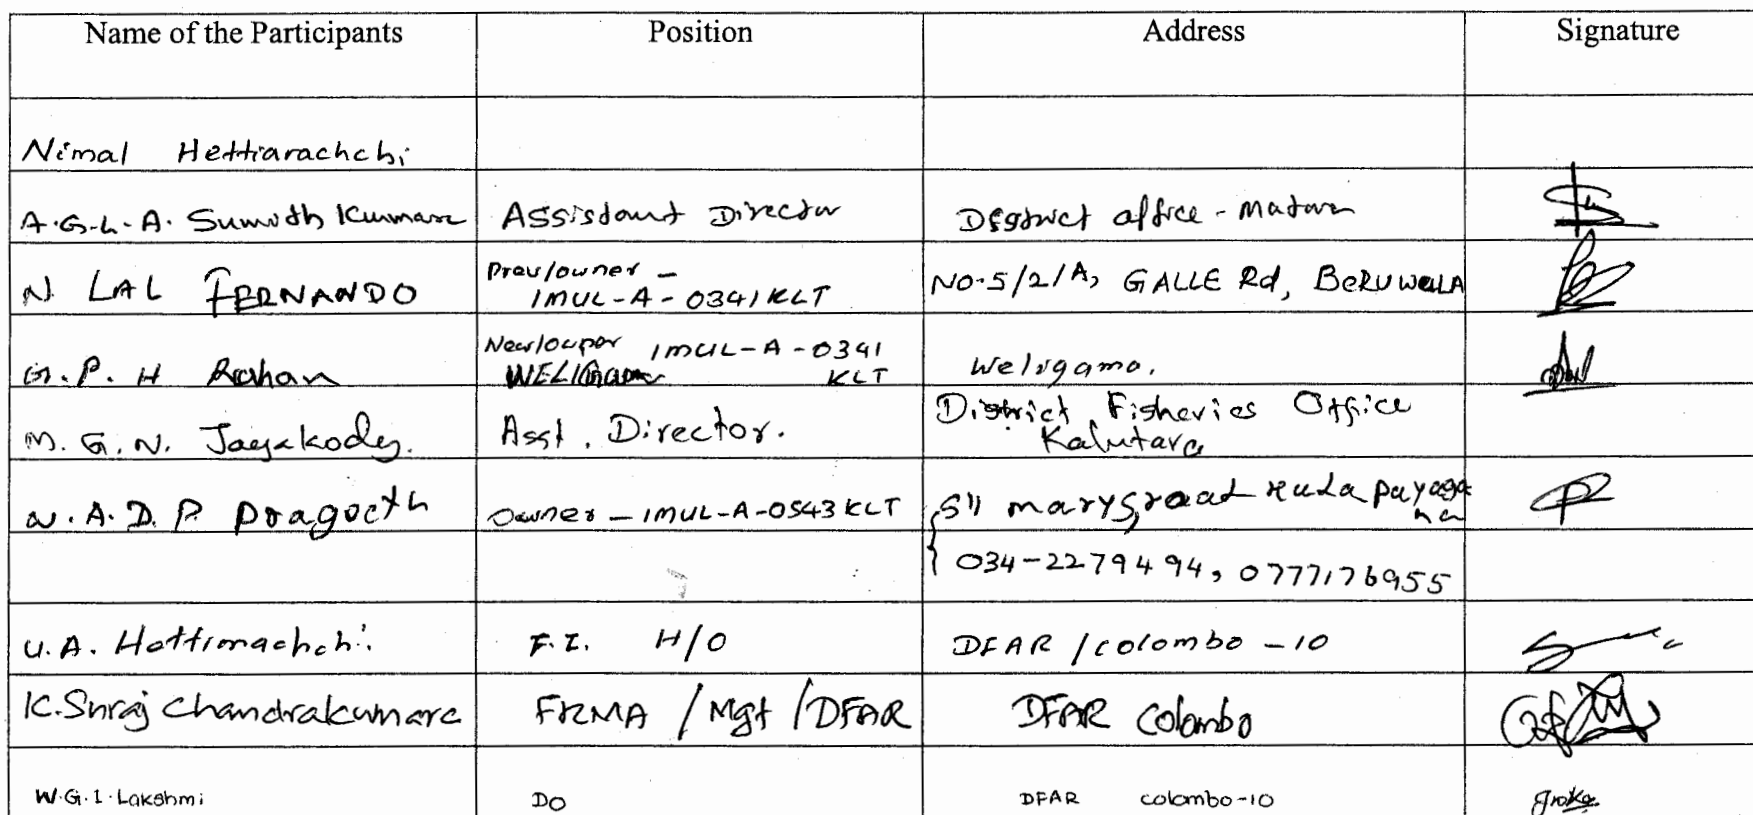 Name of the Participants Position Address Signature
Nimal Hettiarachchi
A.G.L.A. Sumith Kumara Assistant Director District office - Matara
N. LAL FERNANDO Prev/owner - IMUL-A-0341KLT NO.5/2/A, GALLE Rd, BERUWALA
G.P.H Rohan New/ IMUL-A-0341 KLT Weligama.
M.G.N. Jayakody. Asst. Director. District Fisheries Office Kalutara
W.A.D.P. Owner - IMUL-A-0543KLT 511 marys road
034-2279494, 0777176955
U.A. Hettirachchi. F.I. H/O DFAR / colombo - 10
K.Suraj Chandrakumara FRMA / Mgt / DFAR DFAR Colombo
W.G.I. Lakshmi DO DFAR colombo-10